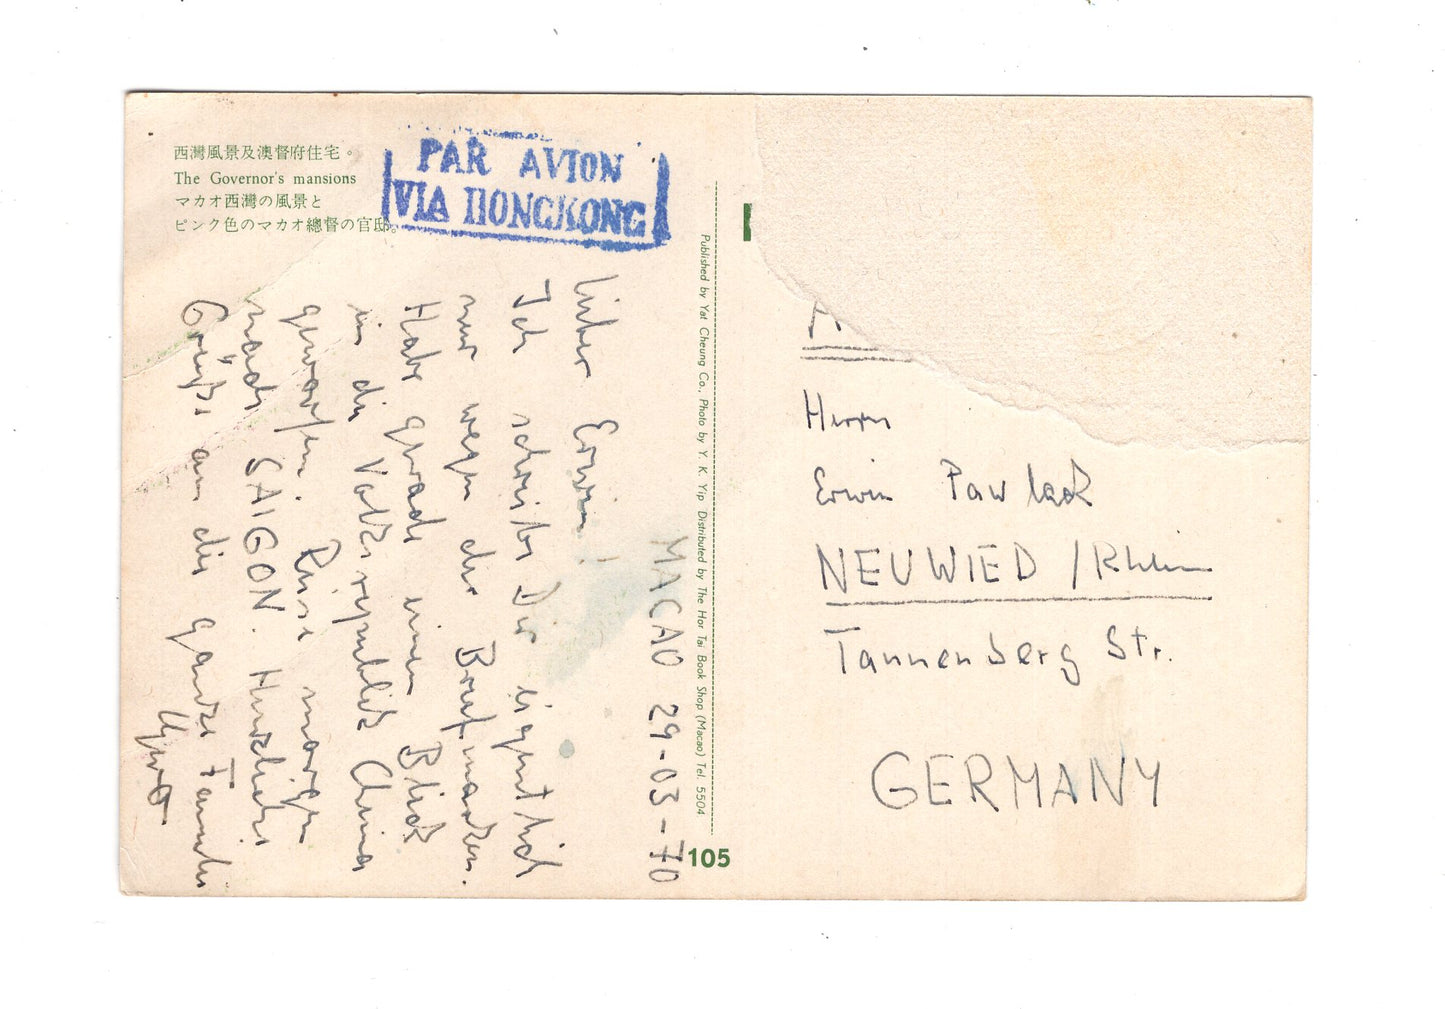 西灣風景及澳督府住宅。
The Governor's mansions
マカオ西灣の風景と
ピンク色のマカオ總督の官邸。
PAR AVION
VIA HONGKONG
MACAO 29-03-70
Lieber Erwin!
Ich schreibe Dir eigentlich
nur wegen der Briefmarken.
Habe gerade einen Blick
in die Volksrepublik China
geworfen. Reise morgen
nach SAIGON. Herzliche
Grüße an die ganze Familie
Published by Yat Cheung Co., Photo by Y. K. Yip Distributed by The Hor Tai Book Shop (Macao) Tel. 5504
105
Herrn
Erwin Pawlack
NEUWIED /Rhein
Tannenberg Str.
GERMANY